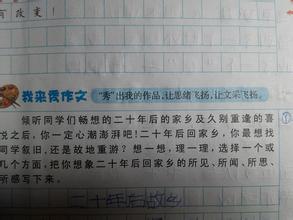 可改变！
我来秀作文 “秀”出我的作品，让思绪飞扬，让文采飞扬。
倾听同学们畅想的二十年后的家乡及久别重逢的喜
悦之后，你一定心潮澎湃吧！二十年后回家乡，你最想找
同学叙旧，还是故地重游？想一想，理一理，选择一个或
几个方面，把你想象二十年后回家乡的所见、所闻、所思、
所感写下来。
二十年后故乡